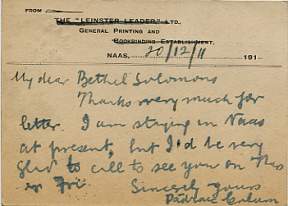 FROM
THE "LEINSTER LEADER" LTD.
GENERAL PRINTING AND
BOOKBINDING ESTABLISHMENT.
NAAS, 20/12/11 191
My dear Bethel Solomons
Thanks very much for
letter. I am staying in Naas
at present, but I'd be very
glad to call to see you on Thos
or Fri.
Sincerely yours
Padraic Colum